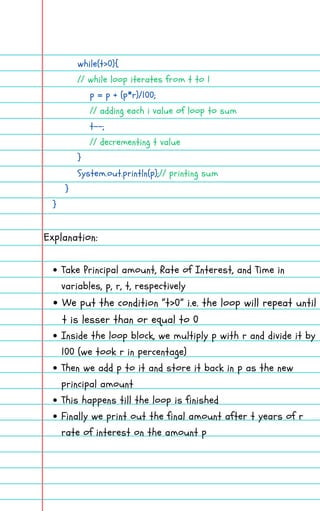 while(t>0){
// while loop iterates from t to 1
p = p + (p*r)/100;
// adding each i value of loop to sum
t--;
// decrementing t value
}
System.out.println(p);// printing sum
}
}
Explanation:
• Take Principal amount, Rate of Interest, and Time in
variables, p, r, t, respectively
• We put the condition "t>0" i.e. the loop will repeat until
t is lesser than or equal to 0
• Inside the loop block, we multiply p with r and divide it by
100 (we took r in percentage)
• Then we add p to it and store it back in p as the new
principal amount
• This happens till the loop is finished
• Finally we print out the final amount after t years of r
rate of interest on the amount p